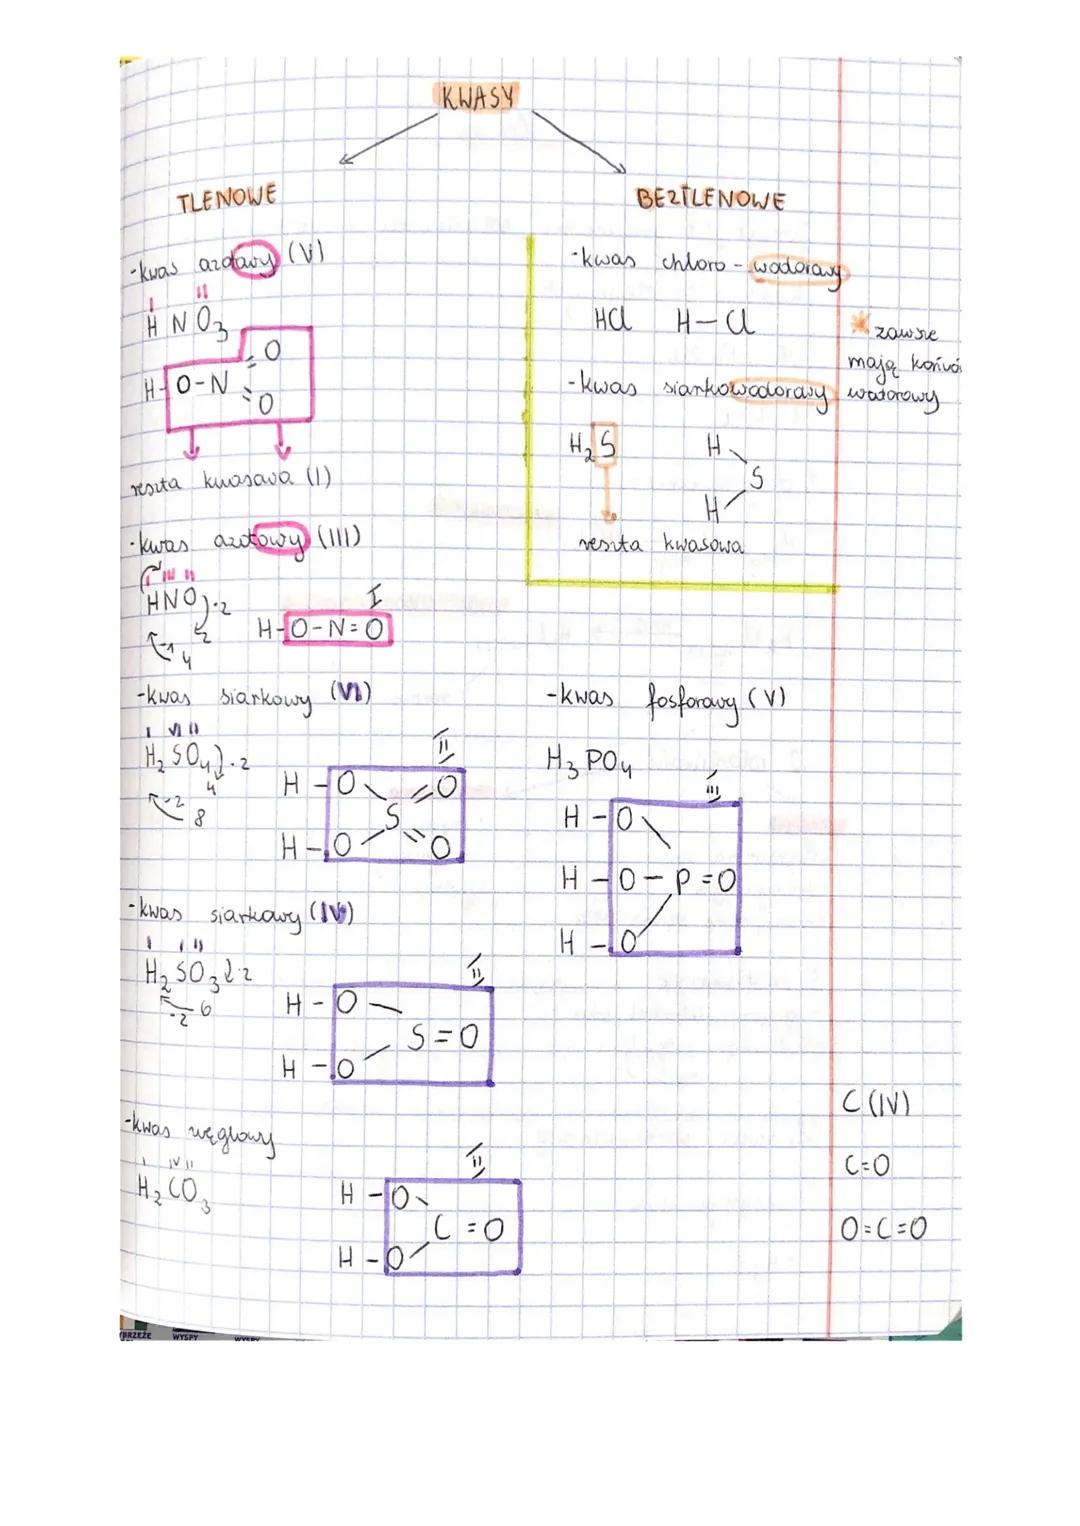 KWASY
TLENOWE
-kwas azotawy (V)
I II
H N O3
H-O-N=O
=O
reszta kwasowa (I)
-kwas azotowy (III)
I III II
HNO2).2
-1 4
I
H-O-N=O
-kwas siarkowy (VI)
I VI II
H2SO4).2
-2 8
II
H-O O
S
H-O O
-kwas siarkawy (IV)
I II
H2SO3).2
-2 6
II
H-O
S=O
H-O
-kwas węglowy
I IV II
H2CO3
II
H-O
C=O
H-O
BEZTLENOWE
-kwas chloro-wodorowy
HCl H-Cl
-kwas siarkowodorowy
H2S
H
S
H
reszta kwasowa
* zawsze
mają końcó
wodorowy
-kwas fosforowy (V)
H3PO4
III
H-O
H-O-P=O
H-O
C (IV)
C=O
O=C=O
WYBRZEŻE
WYSPY
WYSPY